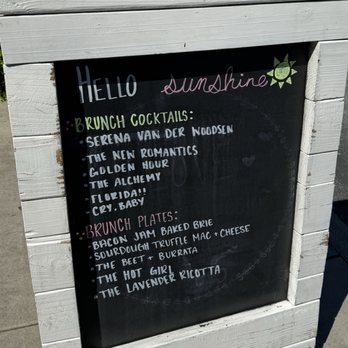 HELLO sunshine
BRUNCH COCKTAILS:
- SERENA VAN DER WOODSEN
- THE NEW ROMANTICS
- GOLDEN HOUR
- THE ALCHEMY
- FLORIDA!!
- CRY, BABY
BRUNCH PLATES:
- BACON JAM BAKED BRIE
- SOURDOUGH TRUFFLE MAC + CHEESE
- THE BEET + BURRATA
- THE HOT GIRL
- THE LAVENDER RICOTTA